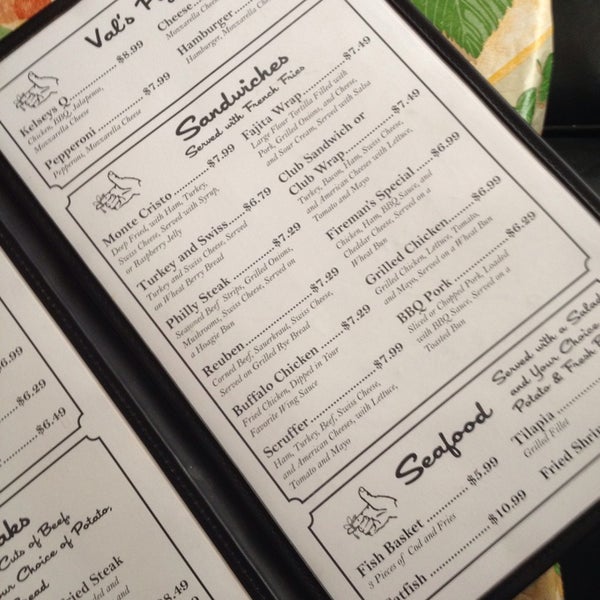 Val's
Kelseys Q............ $8.99
Chicken, BBQ, Jalapeno,
Mozzarella Cheese
Pepperoni............ $7.99
Pepperoni, Mozzarella Cheese
Cheese
Mozzarella Cheese
Hamburger
Hamburger, Mozzarella Cheese
Sandwiches
Served with French Fries
Monte Cristo............ $7.99
Deep Fried, with Ham, Turkey,
Swiss Cheese, Served with Syrup,
or Raspberry Jelly
Turkey and Swiss..... $6.79
Turkey and Swiss Cheese, Served
on Wheat Berry Bread
Philly Steak............ $7.29
Seasoned Beef Strips, Grilled Onions,
Mushrooms, Swiss Cheese, Served on
a Hoagie Bun
Reuben.................. $7.29
Corned Beef, Sauerkraut, Swiss Cheese,
Served on Grilled Rye Bread
Buffalo Chicken...... $7.29
Fried Chicken, Dipped in Your
Favorite Wing Sauce
Scruffer................. $7.99
Ham, Turkey, Beef, Swiss Cheese
and American Cheeses, with Lettuce,
Tomato and Mayo
Fajita Wrap............ $7.49
Large Flour Tortilla Filled with
Pork, Grilled Onions, and Cheese,
and Sour Cream, Served with Salsa
Club Sandwich or
Club Wrap.............. $7.49
Turkey, Bacon, Ham, Swiss Cheese,
and American Cheeses with Lettuce,
Tomato and Mayo
Fireman's Special.... $6.99
Chicken, Ham, BBQ Sauce, and
Cheddar Cheese, Served on a
Wheat Bun
Grilled Chicken....... $6.99
Grilled Chicken, Lettuce, Tomato,
and Mayo, Served on a Wheat Bun
BBQ Pork............... $6.29
Sliced or Chopped Pork, Loaded
with BBQ Sauce, Served on a
Toasted Bun
Seafood
Served with a Salad
and Your Choice
Potato & Fresh
Fish Basket............ $5.99
3 Pieces of Cod and Fries
$10.99
Tilapia
Grilled Fillet
Fried
$6.99
$6.29
$6.49
Cuts of Beef
Choice of Potato,
Steak
$8.50